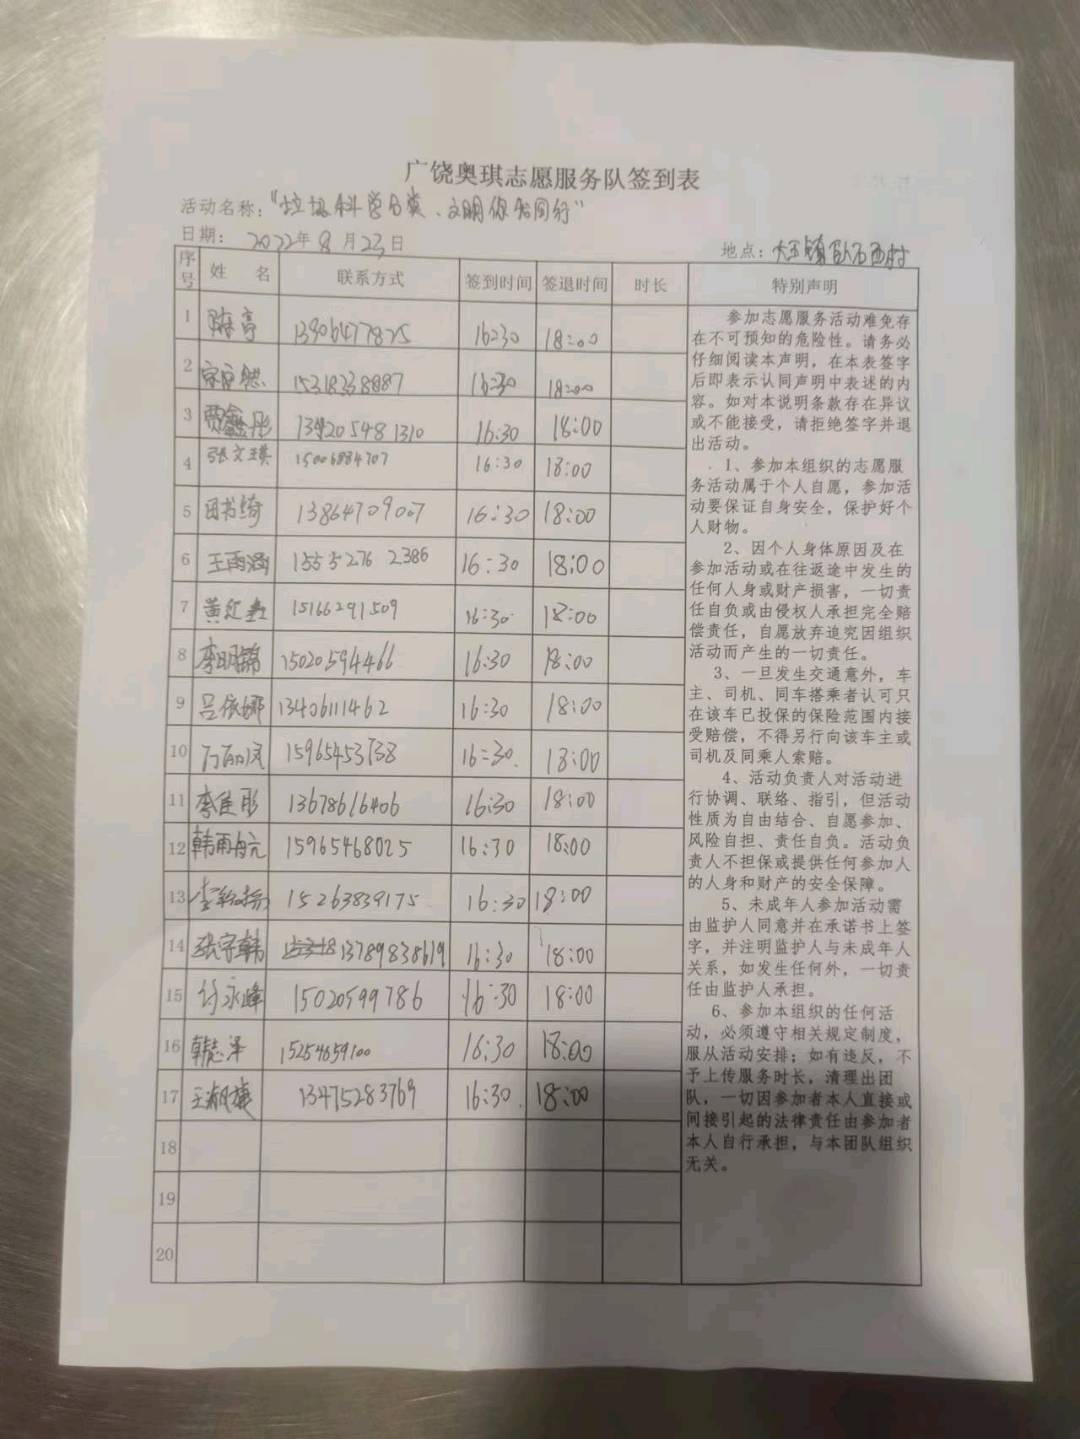 广饶奥琪志愿服务队签到表
活动名称:"垃圾科学分类、文明你我同行"
日期: 2022年8月23日
地点: 大王镇卧石西村
序号 姓 名 联系方式 签到时间 签退时间 时长 特别声明
1 陈亭 13906477825 16:30 18:00
2 15318338887 16:30 18:00
3 贾鑫彤 16:30 18:00
4 张文琪 15006884707 16:30 18:00
5 田书绮 13864709007 16:30 18:00
6 王雨涵 15552762386 16:30 18:00
7 黄红 15166291509 16:30 18:00
8 李明 15020594466 16:30 18:00
9 吕依娜 13406111462 16:30 18:00
10 16:30 18:00
11 李佳彤 13678616406 16:30 18:00
12 韩雨 15965468025 16:30 18:00
13 李 15263839175 16:30 18:00
14 张宇韩 13789838619 16:30 18:00
15 许永峰 15020599786 16:30 18:00
16 韩志泽 15254659100 16:30 18:00
17 王淑 13475283769 16:30 18:00
18
19
20
参加志愿服务活动难免存
在不可预知的危险性。请务必
仔细阅读本声明,在本表签字
后即表示认同声明中表述的内
容。如对本说明条款存在异议
或不能接受,请拒绝签字并退
出活动。
1、参加本组织的志愿服
务活动属于个人自愿,参加活
动要保证自身安全,保护好个
人财物。
2、因个人身体原因及在
参加活动或在往返途中发生的
任何人身或财产损害,一切责
任自负或由侵权人承担完全赔
偿责任,自愿放弃追究因组织
活动而产生的一切责任。
3、一旦发生交通意外,车
主、司机、同车搭乘者认可只
在该车已投保的保险范围内接
受赔偿,不得另行向该车主或
司机及同乘人索赔。
4、活动负责人对活动进
行协调、联络、指引,但活动
性质为自由结合、自愿参加、
风险自担、责任自负。活动负
责人不担保或提供任何参加人
的人身和财产的安全保障。
5、未成年人参加活动需
由监护人同意并在承诺书上签
字,并注明监护人与未成年人
关系,如发生任何外,一切责
任由监护人承担。
6、参加本组织的任何活
动,必须遵守相关规定制度,
服从活动安排;如有违反,不
予上传服务时长,清理出团
队,一切因参加者本人直接或
间接引起的法律责任由参加者
本人自行承担,与本团队组织
无关。